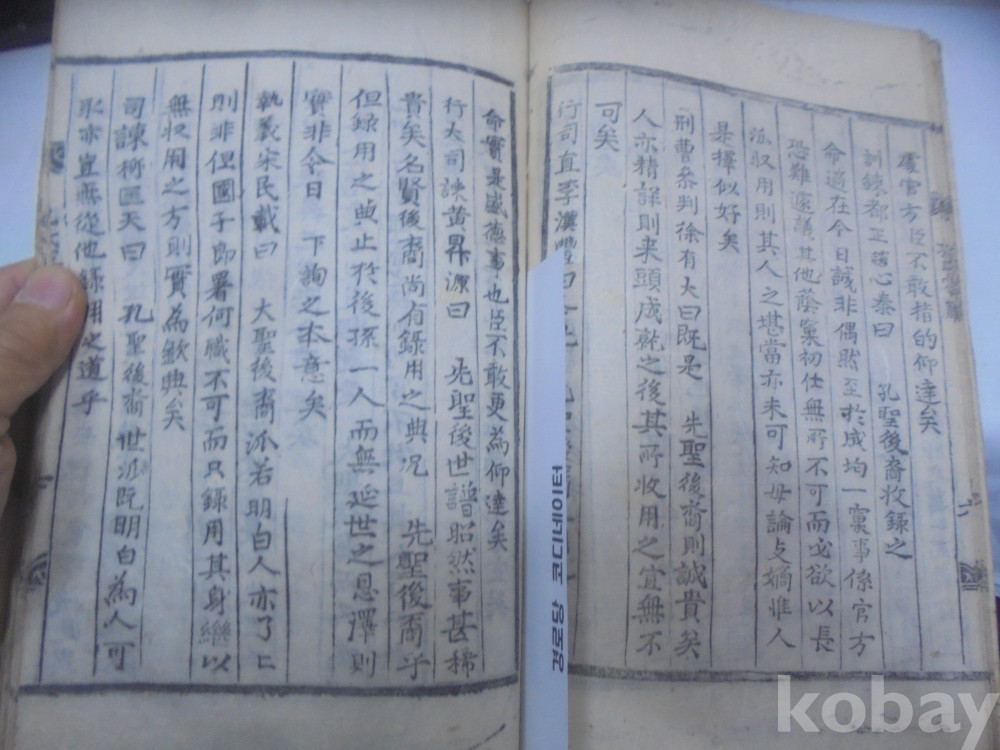 處官方臣不敢指的仰達矣
訓鍊都正 心泰曰 孔聖後裔收錄之
命適在今日誠非偶然至於成均一窠事係官方
恐難遽議其他蔭窠初仕無所不可而必欲以長
派收用則其人之堪當亦未可知毋論支嫡惟人
是擇似好矣
刑曹參判徐有大曰旣是 先聖後裔則誠貴矣
人亦精詳則來頭成就之後其所收用之宜無不
可矣
行司直李漢豐曰
命實是盛德事也臣不敢更爲仰達矣
行大司諫黃昇源曰 先聖後世譜昭然事甚稀
貴矣名賢後裔尚有錄用之典况 先聖後裔乎
但錄用之典止於後孫一人而無延世之恩澤則
實非今日 下詢之本意矣
執義宋民載曰 大聖後裔派若明白人亦了了
則非但國子郎署何職不可而只錄用其身繼以
無收用之方則實爲欠典矣
司諫柳匡天曰 孔聖後裔世派旣明白爲人可
取亦豈無從他錄用之道乎
경로당 코디네이터
kobay